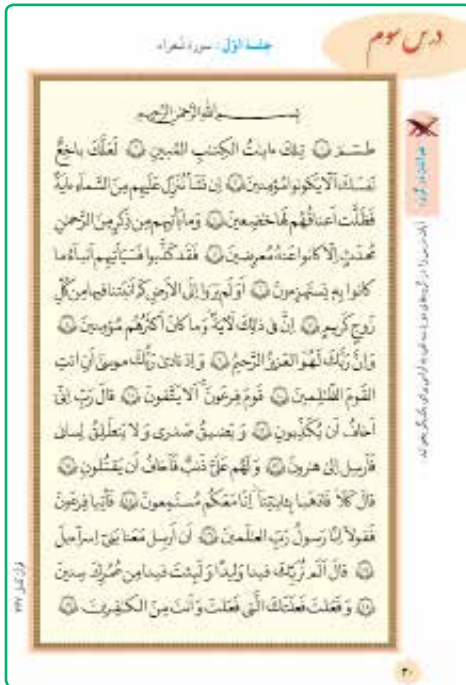 درس سوم
جلسهٔ اوّل: سورهٔ شعراء
بِسمِ اللهِ الرَّحمٰنِ الرَّحیمِ
طسٓمٓ ۝ تِلكَ ءایٰتُ الكِتٰبِ المُبینِ ۝ لَعَلَّكَ باخِعٌ
نَفسَكَ اَلّا یَكونوا مُؤمِنینَ ۝ اِن نَشَأ نُنَزِّل عَلَیهِم مِنَ السَّماءِ ءایَةً
فَظَلَّت اَعناقُهُم لَها خٰضِعینَ ۝ وَ ما یَأتیهِم مِن ذِكرٍ مِنَ الرَّحمٰنِ
مُحدَثٍ اِلّا كانوا عَنهُ مُعرِضینَ ۝ فَقَد كَذَّبوا فَسَیَأتیهِم اَنبٰٓؤُا ما
كانوا بِهٖ یَستَهزِءونَ ۝ اَوَ لَم یَرَوا اِلَی الاَرضِ كَم اَنبَتنا فیها مِن كُلِّ
زَوجٍ كَریمٍ ۝ اِنَّ فی ذٰلِكَ لَءایَةً وَ ما كانَ اَكثَرُهُم مُؤمِنینَ ۝
وَ اِنَّ رَبَّكَ لَهُوَ العَزیزُ الرَّحیمُ ۝ وَ اِذ نادیٰ رَبُّكَ موسیٰٓ اَنِ ائتِ
القَومَ الظّٰلِمینَ ۝ قَومَ فِرعَونَ اَلا یَتَّقونَ ۝ قالَ رَبِّ اِنّی
اَخافُ اَن یُكَذِّبونِ ۝ وَ یَضیقُ صَدری وَ لا یَنطَلِقُ لِسانی
فَاَرسِل اِلیٰ هٰرونَ ۝ وَ لَهُم عَلَیَّ ذَنبٌ فَاَخافُ اَن یَقتُلونِ ۝
قالَ كَلّا فَاذهَبا بِـٔایٰتِنا اِنّا مَعَكُم مُستَمِعونَ ۝ فَأتِیا فِرعَونَ
فَقولا اِنّا رَسولُ رَبِّ العٰلَمینَ ۝ اَن اَرسِل مَعَنا بَنی اِسرٰٓءیلَ
۝ قالَ اَلَم نُرَبِّكَ فینا وَلیدًا وَ لَبِثتَ فینا مِن عُمُرِكَ سِنینَ
۝ وَ فَعَلتَ فَعلَتَكَ الَّتی فَعَلتَ وَ اَنتَ مِنَ الكٰفِرینَ ۝
قرآن کامل ۳۶۷
۳۰